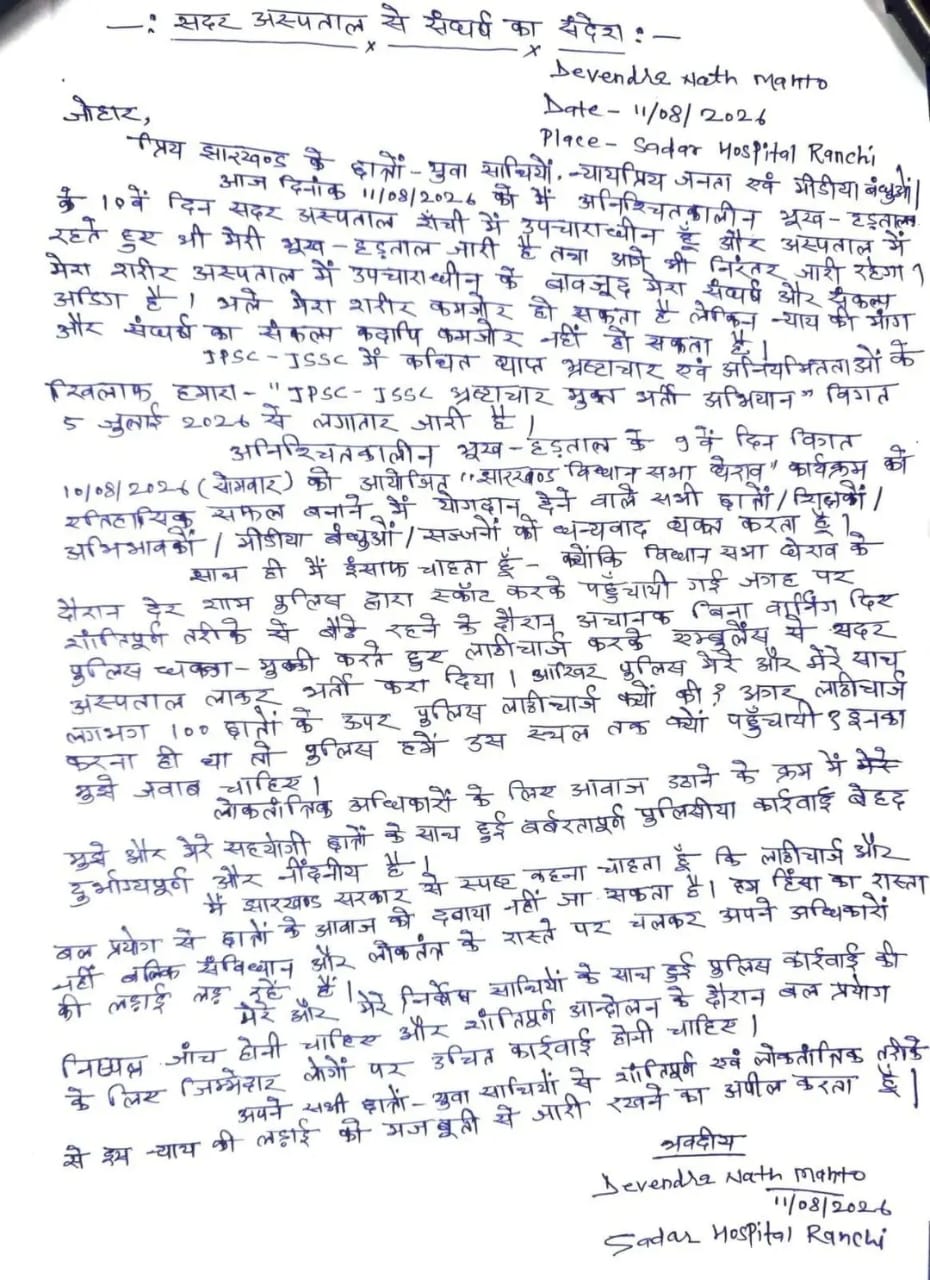 —: सदर अस्पताल से संघर्ष का संदेश :—
Devendra Nath Mahto
Date - 11/08/2026
Place - Sadar Hospital Ranchi
जोहार,
प्रिय झारखण्ड के छात्रों - युवा साथियों, न्यायप्रिय जनता एवं मीडीया बंधुओं।
आज दिनांक 11/08/2026 को मैं अनिश्चितकालीन भूख-हड़ताल
के 10वें दिन सदर अस्पताल राँची में उपचाराधीन हूँ और अस्पताल में
रहते हुए भी मेरी भूख-हड़ताल जारी है तथा आगे भी निरंतर जारी रहेगा।
मेरा शरीर अस्पताल में उपचाराधीन के बावजूद मेरा संघर्ष और संकल्प
अडिग है। भले मेरा शरीर कमजोर हो सकता है लेकिन न्याय की मांग
और संघर्ष का संकल्प कदापि कमजोर नहीं हो सकता है।
JPSC-JSSC में कथित व्याप्त भ्रष्टाचार एवं अनियमितताओं के
खिलाफ हमारा - "JPSC-JSSC भ्रष्टाचार मुक्त भर्ती अभियान" विगत
5 जुलाई 2026 से लगातार जारी है।
अनिश्चितकालीन भूख-हड़ताल के 9वें दिन विगत
10/08/2026 (सोमवार) को आयोजित "झारखण्ड विधान सभा घेराव" कार्यक्रम को
एतिहासिक सफल बनाने में योगदान देने वाले सभी छात्रों/शिक्षकों/
अभिभावकों/मीडीया बंधुओं/सज्जनों को धन्यवाद व्यक्त करता हूँ।
साथ ही मैं इंसाफ चाहता हूँ - क्योंकि विधान सभा घेराव के
दौरान देर शाम पुलिस द्वारा स्कॉट करके पहुँचायी गई जगह पर
शांतिपूर्ण तरीके से बैठे रहने के दौरान अचानक बिना वार्निंग दिए
पुलिस धक्का-मुक्की करते हुए लाठीचार्ज करके एम्बुलेंस से सदर
अस्पताल लाकर भर्ती करा दिया। आखिर पुलिस मेरे और मेरे साथ
लगभग 100 छात्रों के ऊपर पुलिस लाठीचार्ज क्यों की? अगर लाठीचार्ज
करना ही था तो पुलिस हमें उस स्थल तक क्यों पहुँचायी? इनका
मुझे जवाब चाहिए।
लोकतांत्रिक अधिकारों के लिए आवाज उठाने के क्रम में मेरे
मुझे और मेरे सहयोगी छात्रों के साथ हुई बर्बरतापूर्ण पुलिसीया कार्रवाई बेहद
दुर्भाग्यपूर्ण और नींदनीय है।
मैं झारखण्ड सरकार से स्पष्ट कहना चाहता हूँ कि लाठीचार्ज और
बल प्रयोग से छात्रों के आवाज को दबाया नहीं जा सकता है। हम हिंसा का रास्ता
नहीं बल्कि संविधान और लोकतंत्र के रास्ते पर चलकर अपने अधिकारों
की लड़ाई लड़ रहे हैं।
मेरे और मेरे निर्दोष साथियों के साथ हुई पुलिस कार्रवाई की
निष्पक्ष जांच होनी चाहिए और शांतिपूर्ण आन्दोलन के दौरान बल प्रयोग
के लिए जिम्मेदार लोगों पर उचित कार्रवाई होनी चाहिए।
अपने सभी छात्रों - युवा साथियों से शांतिपूर्ण एवं लोकतांत्रिक तरीके
से इस न्याय की लड़ाई को मजबूती से जारी रखने का अपील करता हूँ।
भवदीय
Devendra Nath Mahto
11/08/2026
Sadar Hospital Ranchi